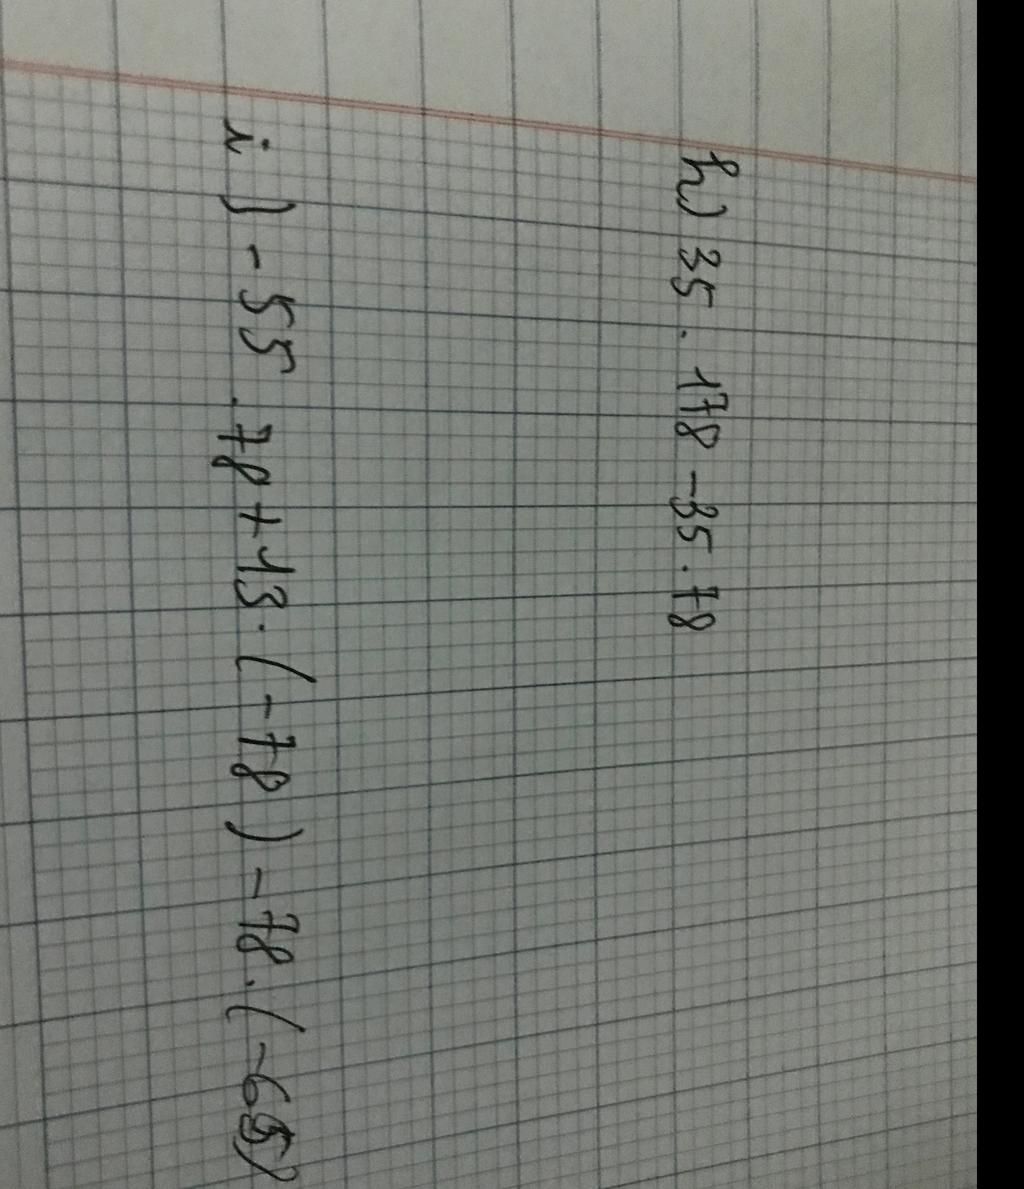 h) 35 . 178 - 35 . 78
i) - 55 . 78 + 13 . (-78) - 78 . (-65)